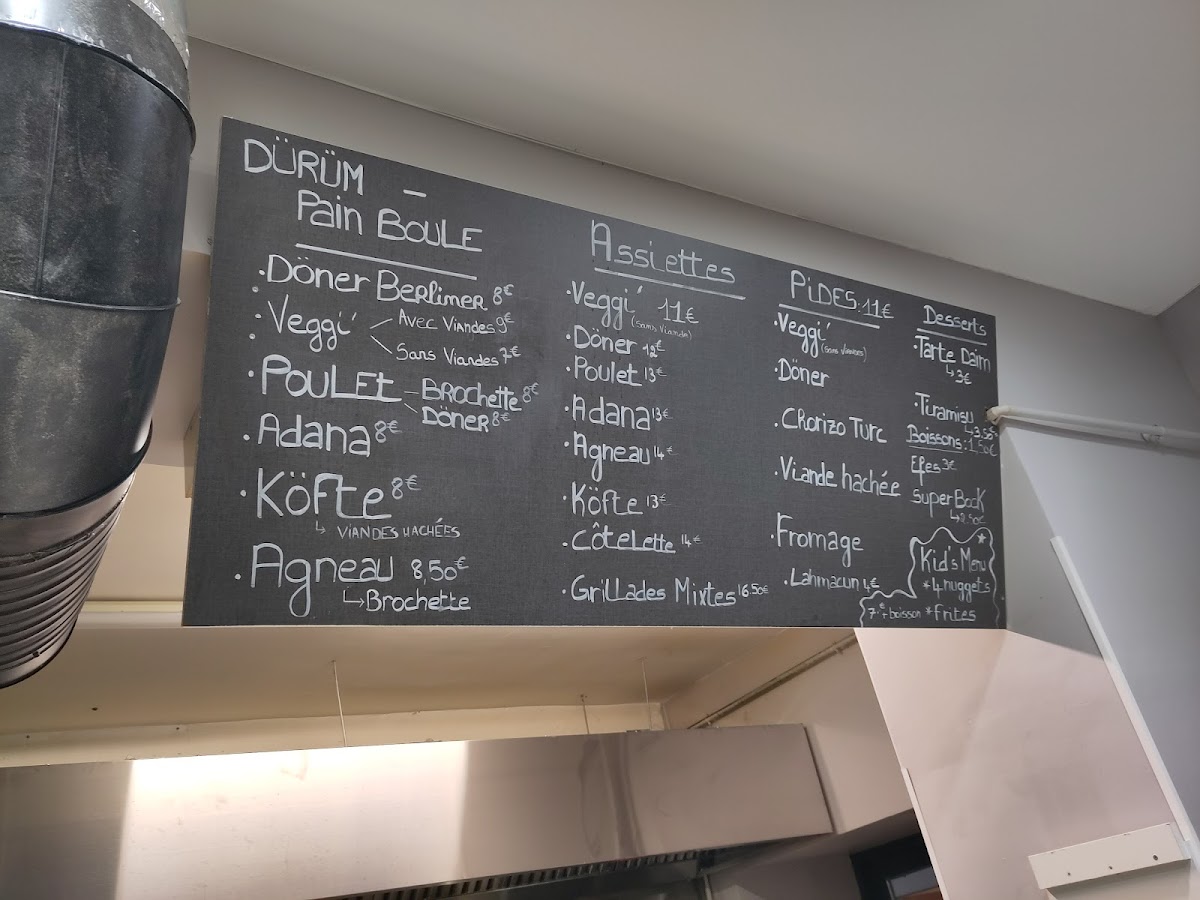 DÜRÜM -
Pain BOULE
· Döner Berliner 8€
· Veggi'
Avec Viandes 9€
Sans Viandes 7€
· POULET
BROchette 8€
DÖNER 8€
· Adana 8€
· Köfte 8€
↳ VIANDES HACHÉES
· Agneau 8,50€
↳ Brochette
Assiettes
· Veggi' 11€
(sans viande)
· Döner 12€
· Poulet 13€
· Adana 13€
· Agneau 14€
· Köfte 13€
· Côtelette 14€
· Grillades Mixtes 16.50€
PiDES : 11€
· Veggi'
(sans viandes)
· Döner
· Chorizo Turc
· Viande hachée
· Fromage
· Lahmacun 4€
Desserts
· Tarte Daim
↳ 3€
· Tiramisu
↳ 3,50€
Boissons : 1,50€
Efes 3€
Super Bock
Kid's Menu
* 4 nuggets
* frites
7€ + boisson